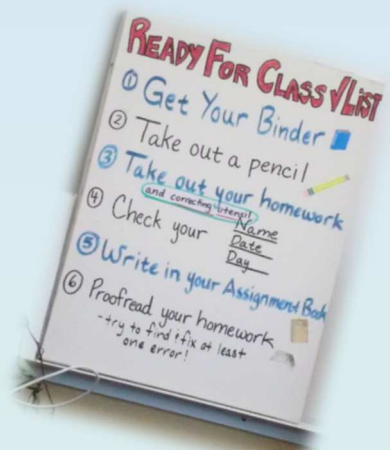 READY FOR CLASS √LIST
① Get Your Binder
② Take out a pencil
③ Take out your homework
and correcting utensil
④ Check your Name
Date
Day
⑤ Write in your Assignment Book
⑥ Proofread your homework
-try to find & fix at least
one error!